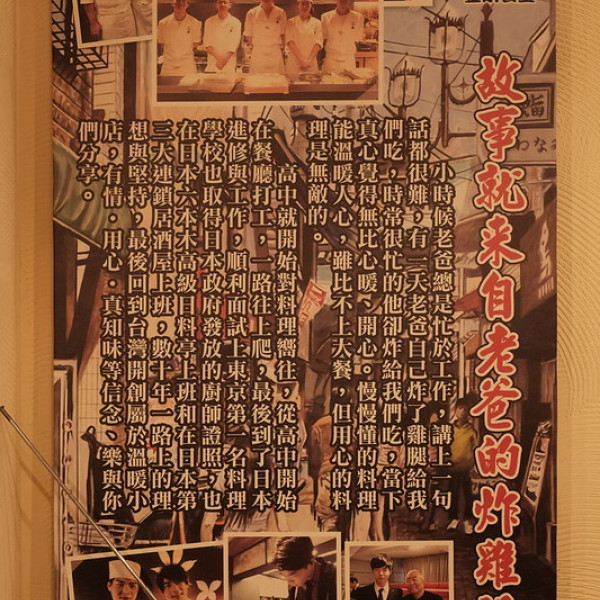 故事就來自老爸的炸雞
小時候老爸總是忙於工作,講上一句
話都很難,有一天老爸自己炸了雞腿給我
們吃,時常很忙的他卻炸給我們吃,當下
真心覺得無比心暖、開心。慢慢懂的料理
能溫暖人心,雖比不上大餐,但用心的料
理是無敵的。
高中就開始對料理嚮往,從高中開始
在餐廳打工,一路往上爬,最後到了日本
進修與工作,順利面試上東京第一名料理
學校也取得日本政府發放的廚師證照,也
在日本六本木高級日料亭上班和在日本第
三大連鎖居酒屋上班,數十年一路上的理
想與堅持,最後回到台灣開創屬於溫暖小
店,有情·用心·真知味等信念、樂與你
們分享。